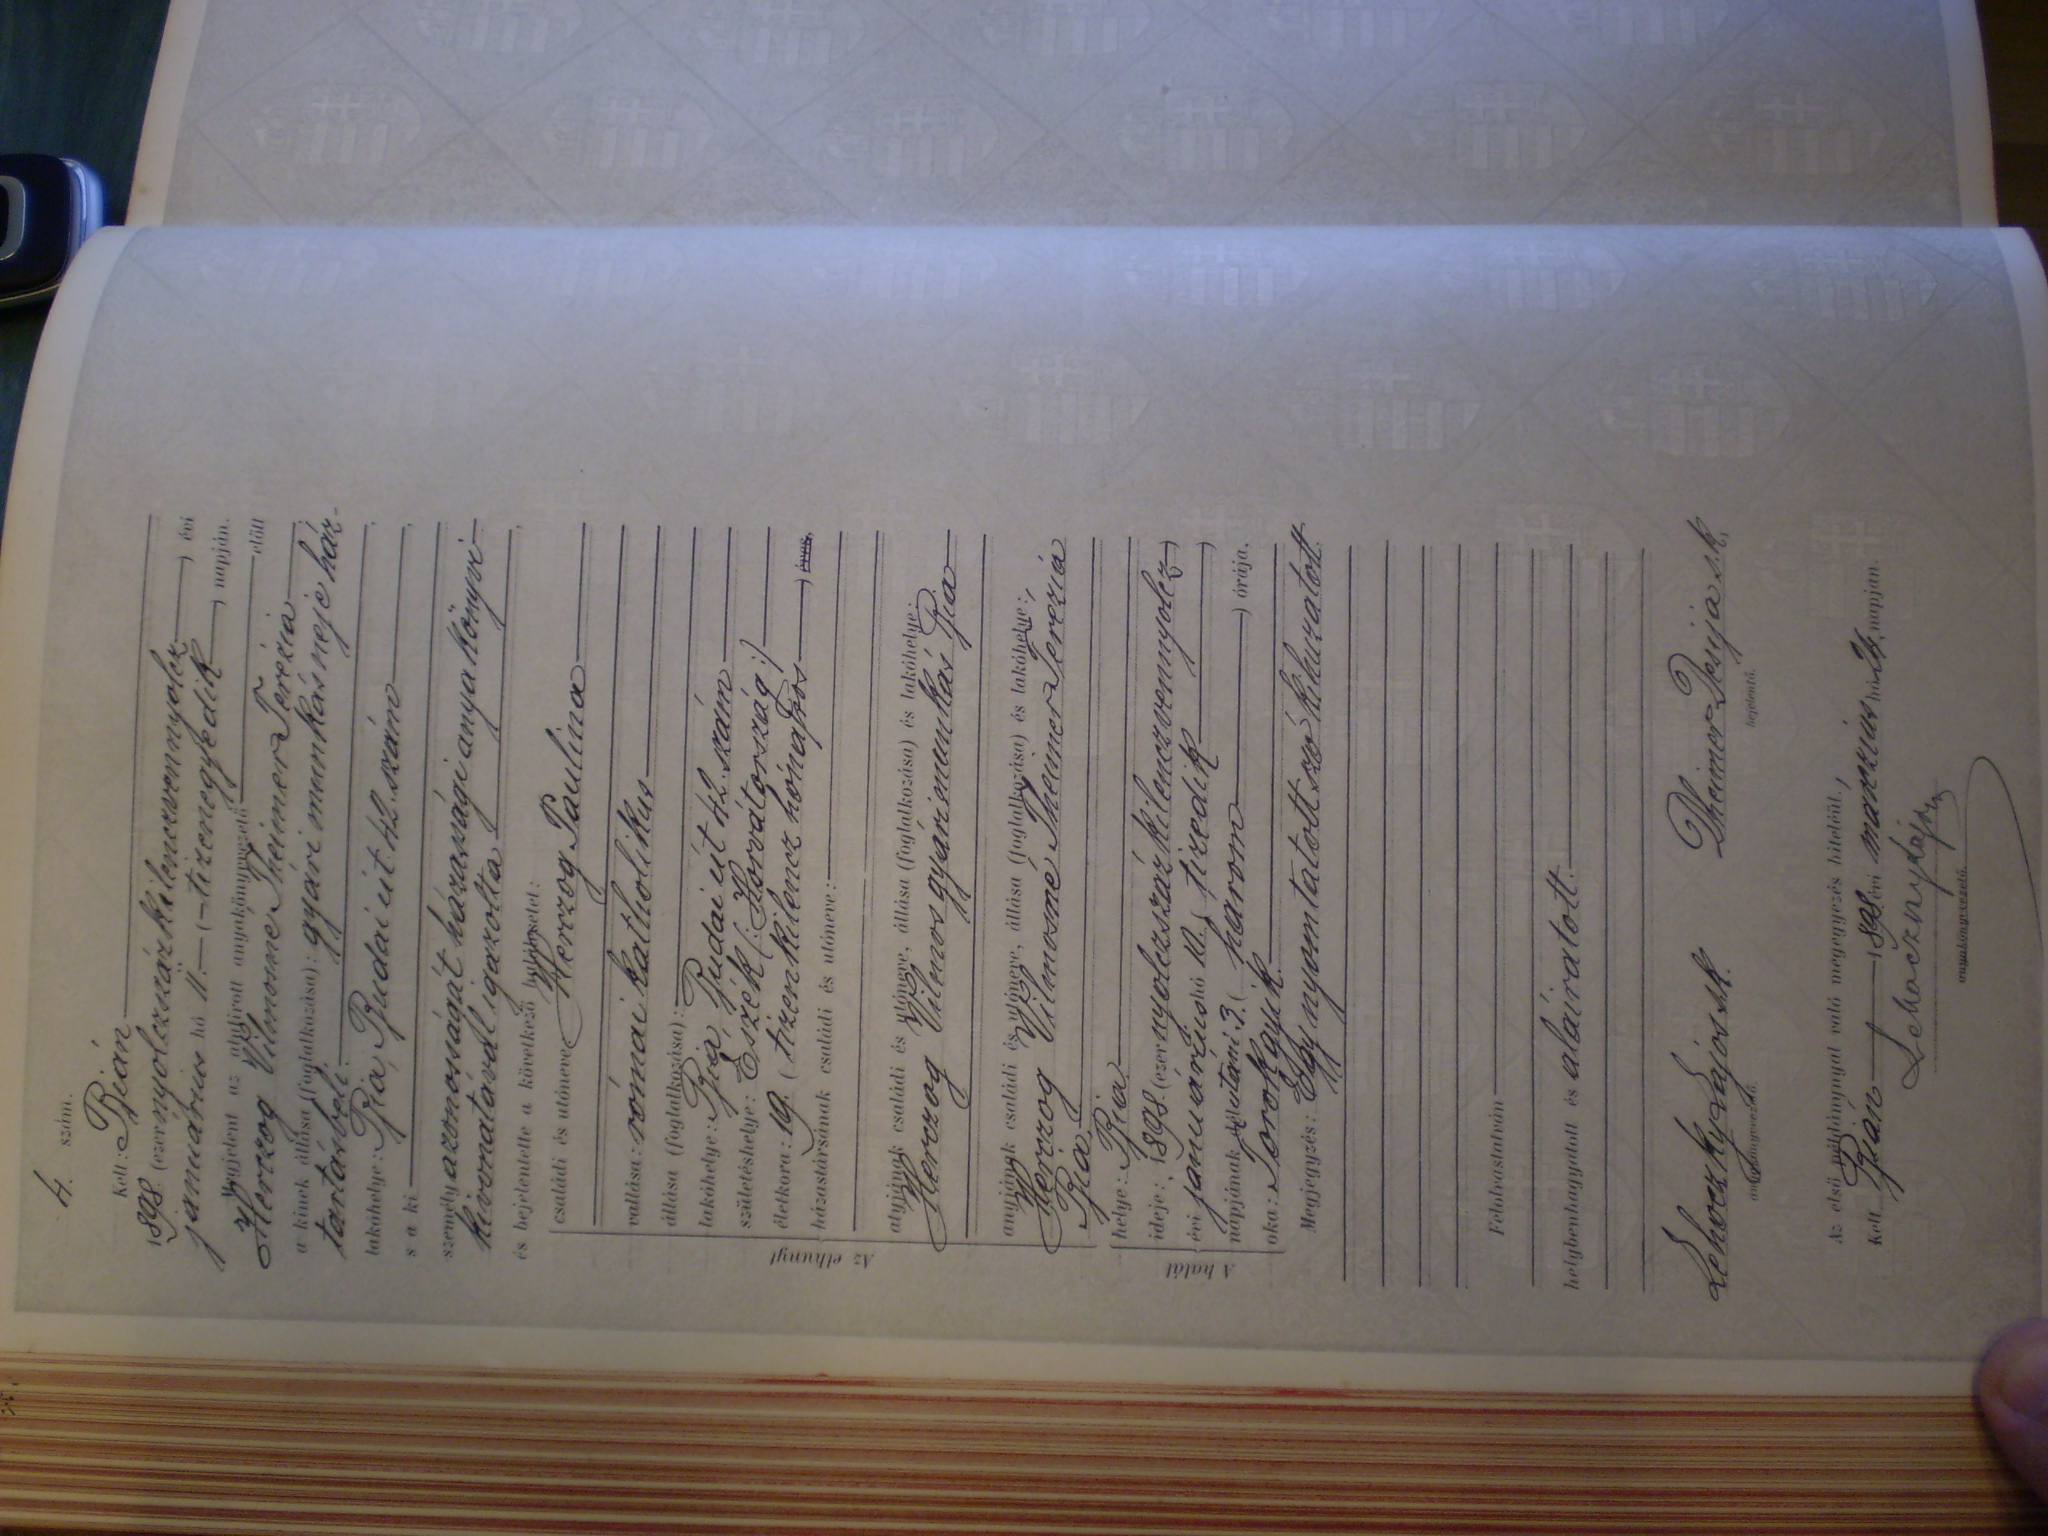 4. szám.
Kelt: Bián
1898. (ezernyolczszázkilenczvennyolcz) évi
január hó 11. (tizenegyedik) napján.
Megjelent az alulirott anyakönyvvezető előtt
Herczog Vilmosné Theimer Terézia
a kinek állása (foglalkozása): gyári munkás neje ház-
tartásbeli
lakóhelye: Bia, Budai út 42. szám
s a ki
személyazonosságát házassági anyakönyvi
kivonatával igazolta
és bejelentette a következő halálesetet:
Az elhunyt
családi és utóneve: Herczog Paulina
vallása: római katholikus
állása (foglalkozása):
lakóhelye: Bia, Budai út 42. szám
születéshelye: Eszék (: Horvátország :)
életkora: 19. (tizenkilencz hónapos) éves,
házastársának családi és utóneve:
atyjának családi és utóneve, állása (foglalkozása) és lakóhelye:
Herczog Vilmos gyári munkás Bia
anyjának családi és utóneve, állása (foglalkozása) és lakóhelye:
Herczog Vilmosné Theimer Terézia
Bia
A halál
helye: Bia
ideje: 1898. (ezernyolczszázkilenczvennyolcz)
évi január hó 10. tizedik
napjának délutáni 3. (három) órája,
oka: Torokgyik
Megjegyzés: Egy nyomtatott szó kihuzatott.
Felolvastatván
helybenhagyatott és aláiratott.
Lehoczky Lajos sk. Theimer Resija s.k.
anyakönyvvezető. bejelentő.
Az első példánnyal való megegyezés hiteléül.
Kelt Bián 1898. évi márczius hó napján.
Lehoczky Lajos
anyakönyvvezető.